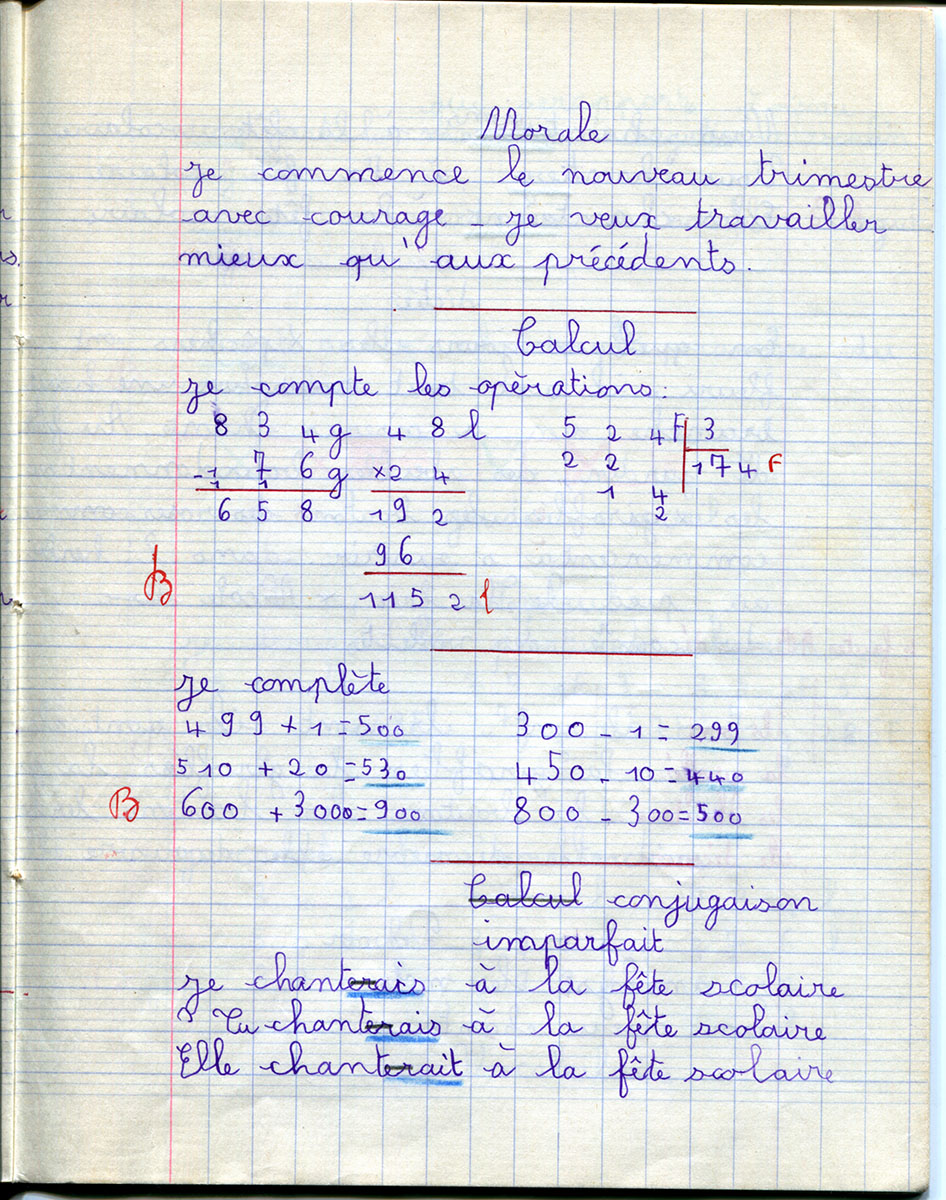 Morale
je commence le nouveau trimestre
avec courage - je veux travailler
mieux qu'aux précédents.
Calcul
je compte les opérations.
8 3 4g 4 8 l 5 2 4F 3
-1 7 6g ×2 4 2 2 174 F
1 1 1 4
6 5 8 19 2 2
96
B 115 2 l
je complète
499 + 1 = 500 300 - 1 = 299
510 + 20 = 530 450 - 10 = 440
B 600 + 3000 = 900 800 - 300 = 500
Calcul conjugaison
imparfait
je chanterais à la fête scolaire
Tu chanterais à la fête scolaire
Elle chanterait à la fête scolaire